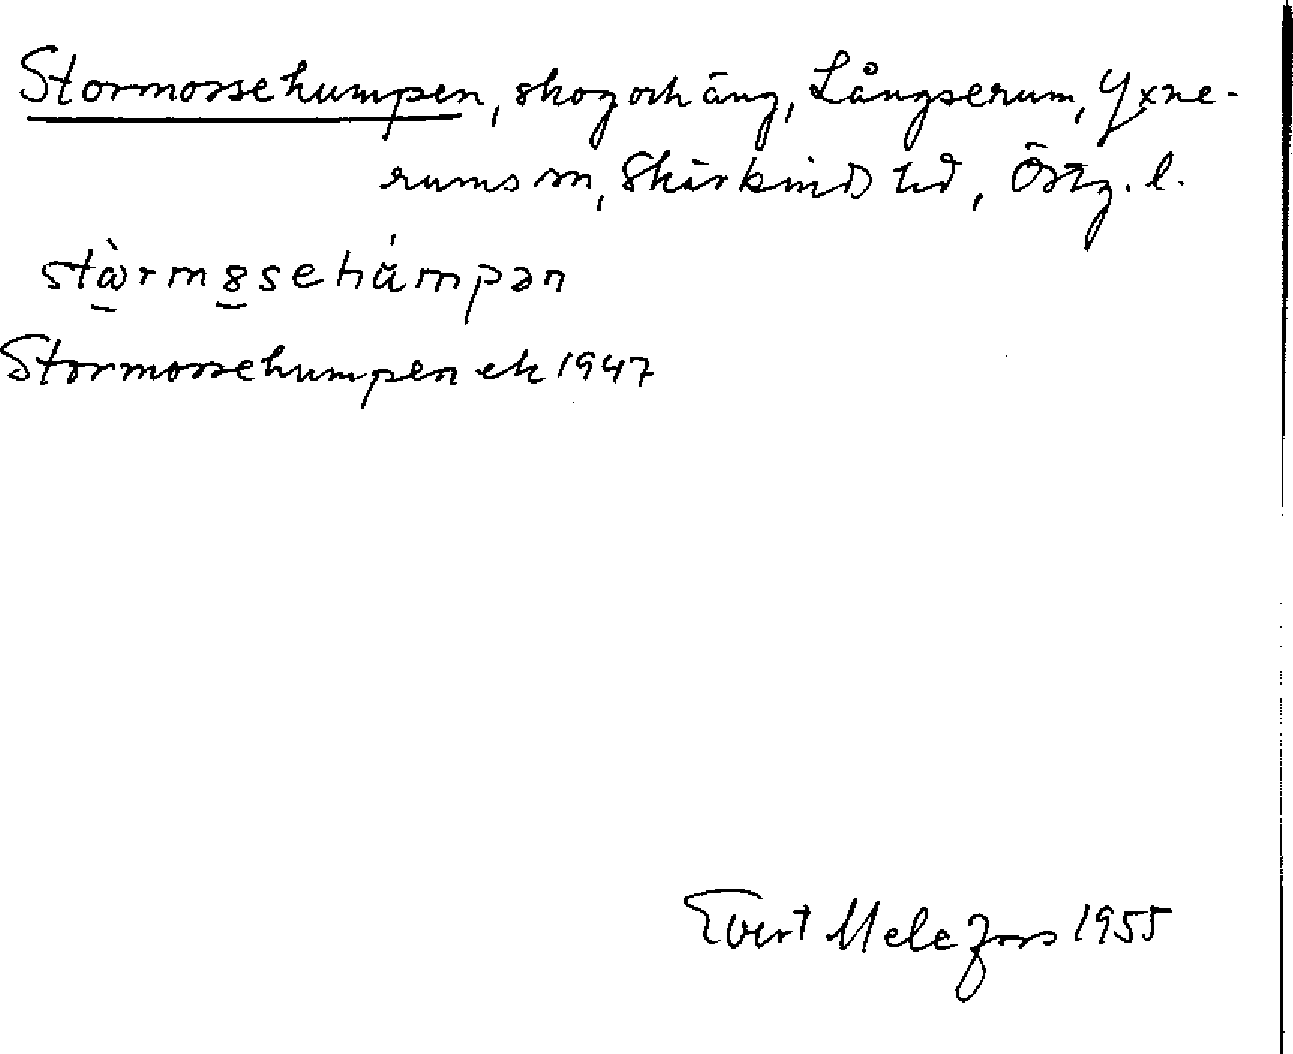 Stormossehumpen, skog och äng, Långserum, Yxne-
rums sn, Skärkinds hd, Östg. l.
Stormossehumpen ek 1947
Evert Melefors 1955